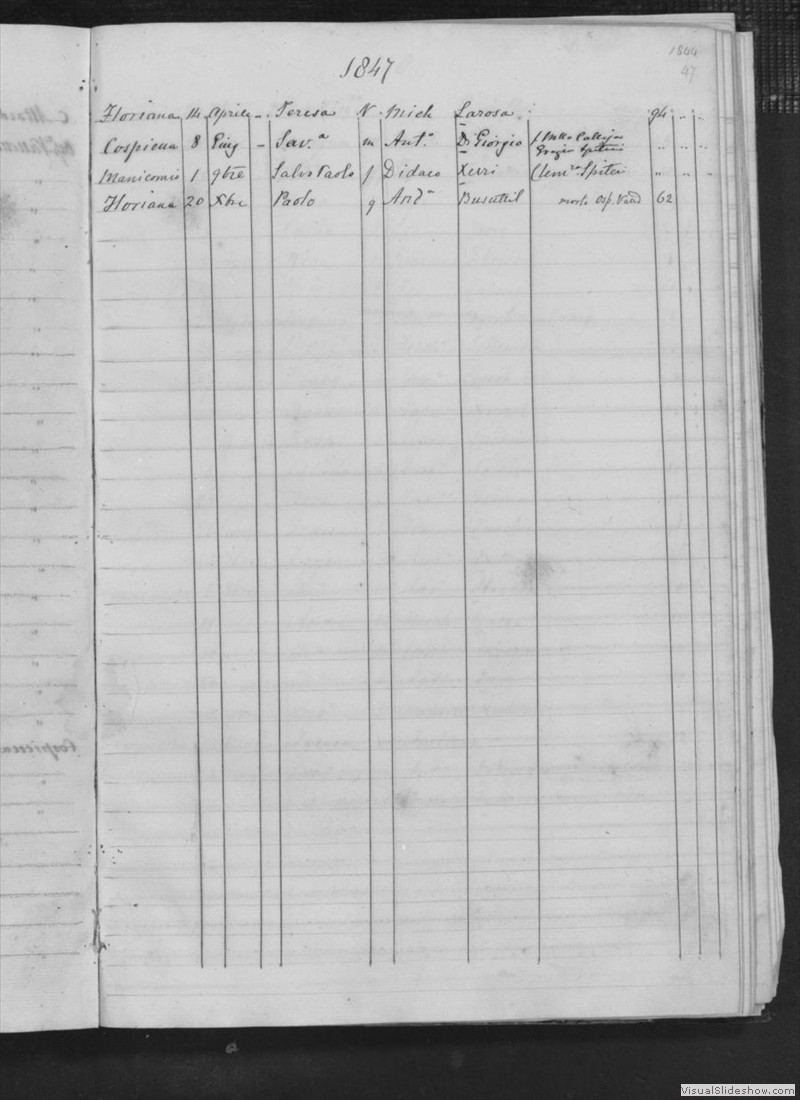 1844
47
1847
Floriana 14 Aprile .. Teresa N Mich Larosa 94 .. ..
Cospicua 8 Giug – Sav.a m Ant.o Di Giorgio Grazio Spiteri .. .. ..
Manicomio 1 9bre Salv Paolo f Didaco Xerri Clem.a Spiteri .. .. ..
Floriana 20 Xbre Paolo g And.a Busuttil morto Osp. 62
Cospicua
VisualSlideshow.com